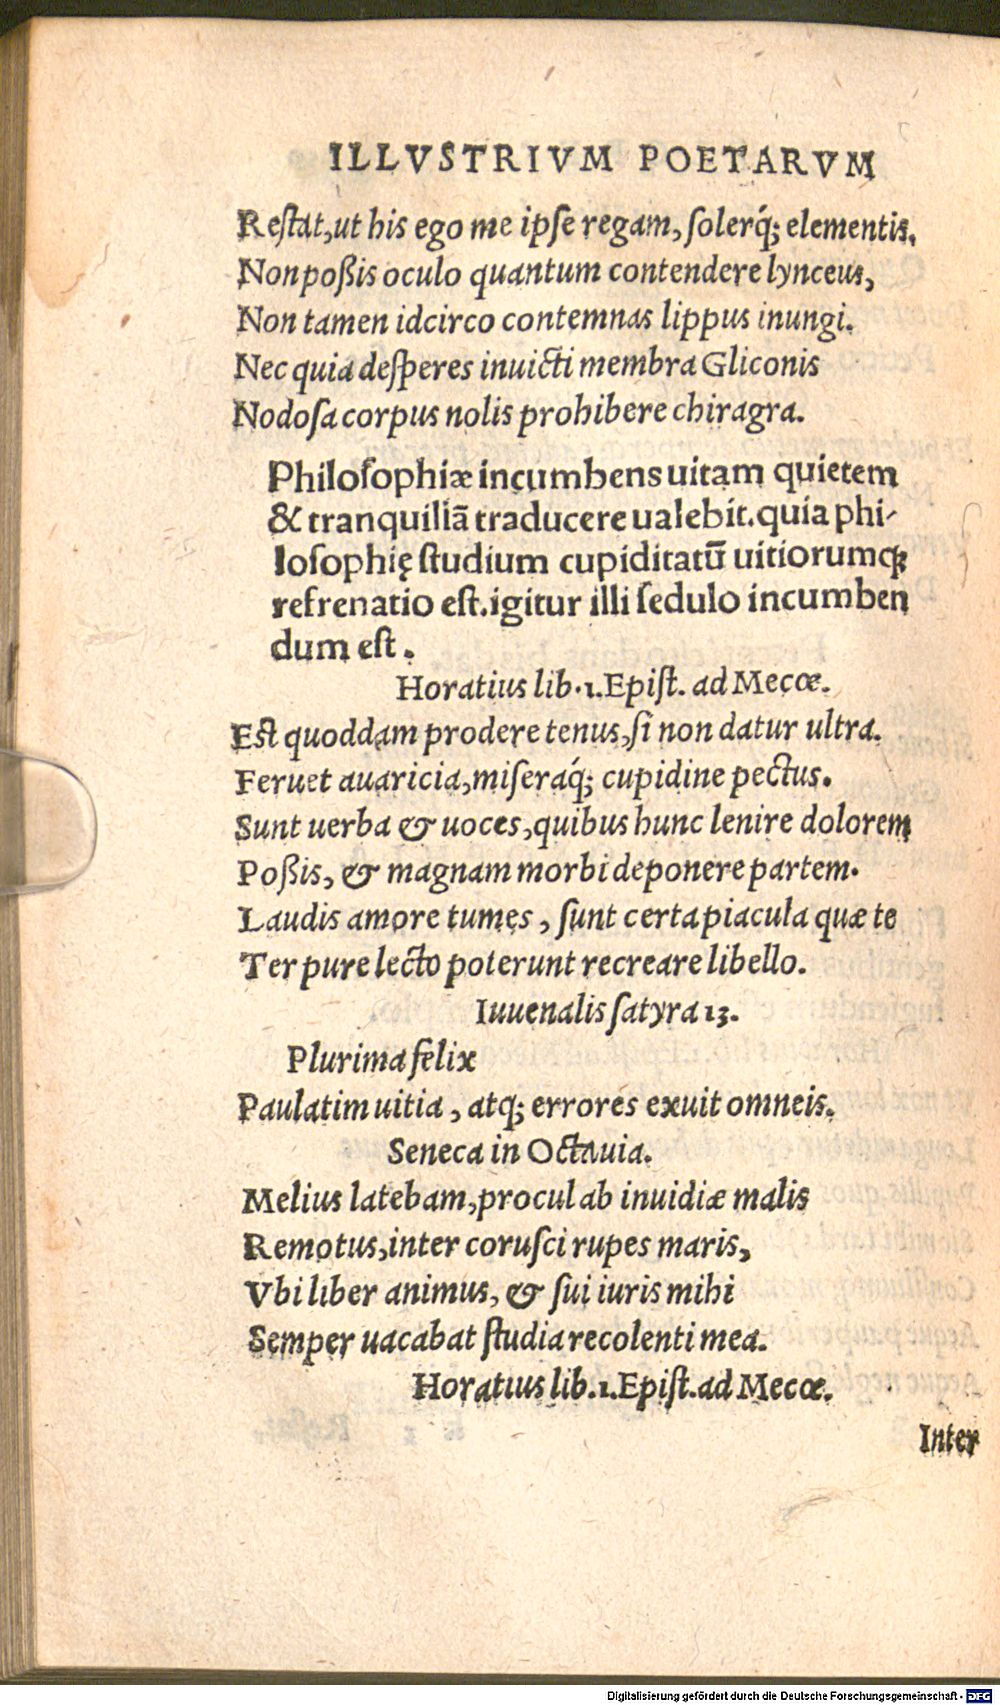 ILLVSTRIVM POETARVM
Restat,ut his ego me ipse regam, solerq́; elementis.
Non poßis oculo quantum contendere lynceus,
Non tamen idcirco contemnas lippus inungi.
Nec quia desperes inuicti membra Gliconis
Nodosa corpus nolis prohibere chiragra.
Philosophiæ incumbens uitam quietem
& tranquiliā traducere ualebit.quia phi-
losophię studium cupiditatū uitiorumq;
refrenatio est.igitur illi sedulo incumben
dum est.
Horatius lib.1.Epist. ad Mecœ.
Est quoddam prodere tenus,si non datur ultra.
Feruet auaricia,miseraq́; cupidine pectus.
Sunt uerba & uoces,quibus hunc lenire dolorem
Poßis, & magnam morbi deponere partem.
Laudis amore tumes, sunt certa piacula quæ te
Ter pure lecto poterunt recreare libello.
Iuuenalis satyra 13.
Plurima felix
Paulatim uitia, atq; errores exuit omneis.
Seneca in Octauia.
Melius latebam,procul ab inuidiæ malis
Remotus,inter corusci rupes maris,
Vbi liber animus, & sui iuris mihi
Semper uacabat studia recolenti mea.
Horatius lib.1.Epist.ad Mecœ.
Inter
Digitalisierung gefördert durch die Deutsche Forschungsgemeinschaft - DFG